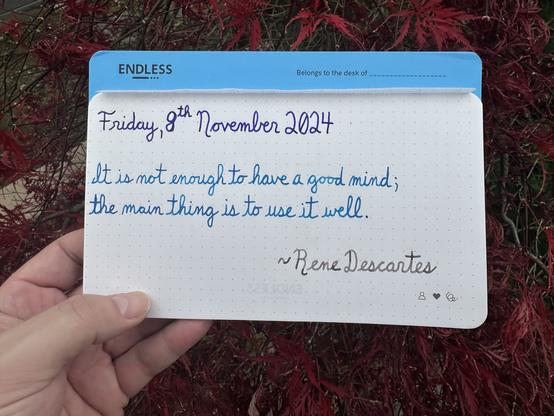 ENDLESS
Belongs to the desk of ____________________
Friday, 8th November 2024
It is not enough to have a good mind;
the main thing is to use it well.
~Rene Descartes